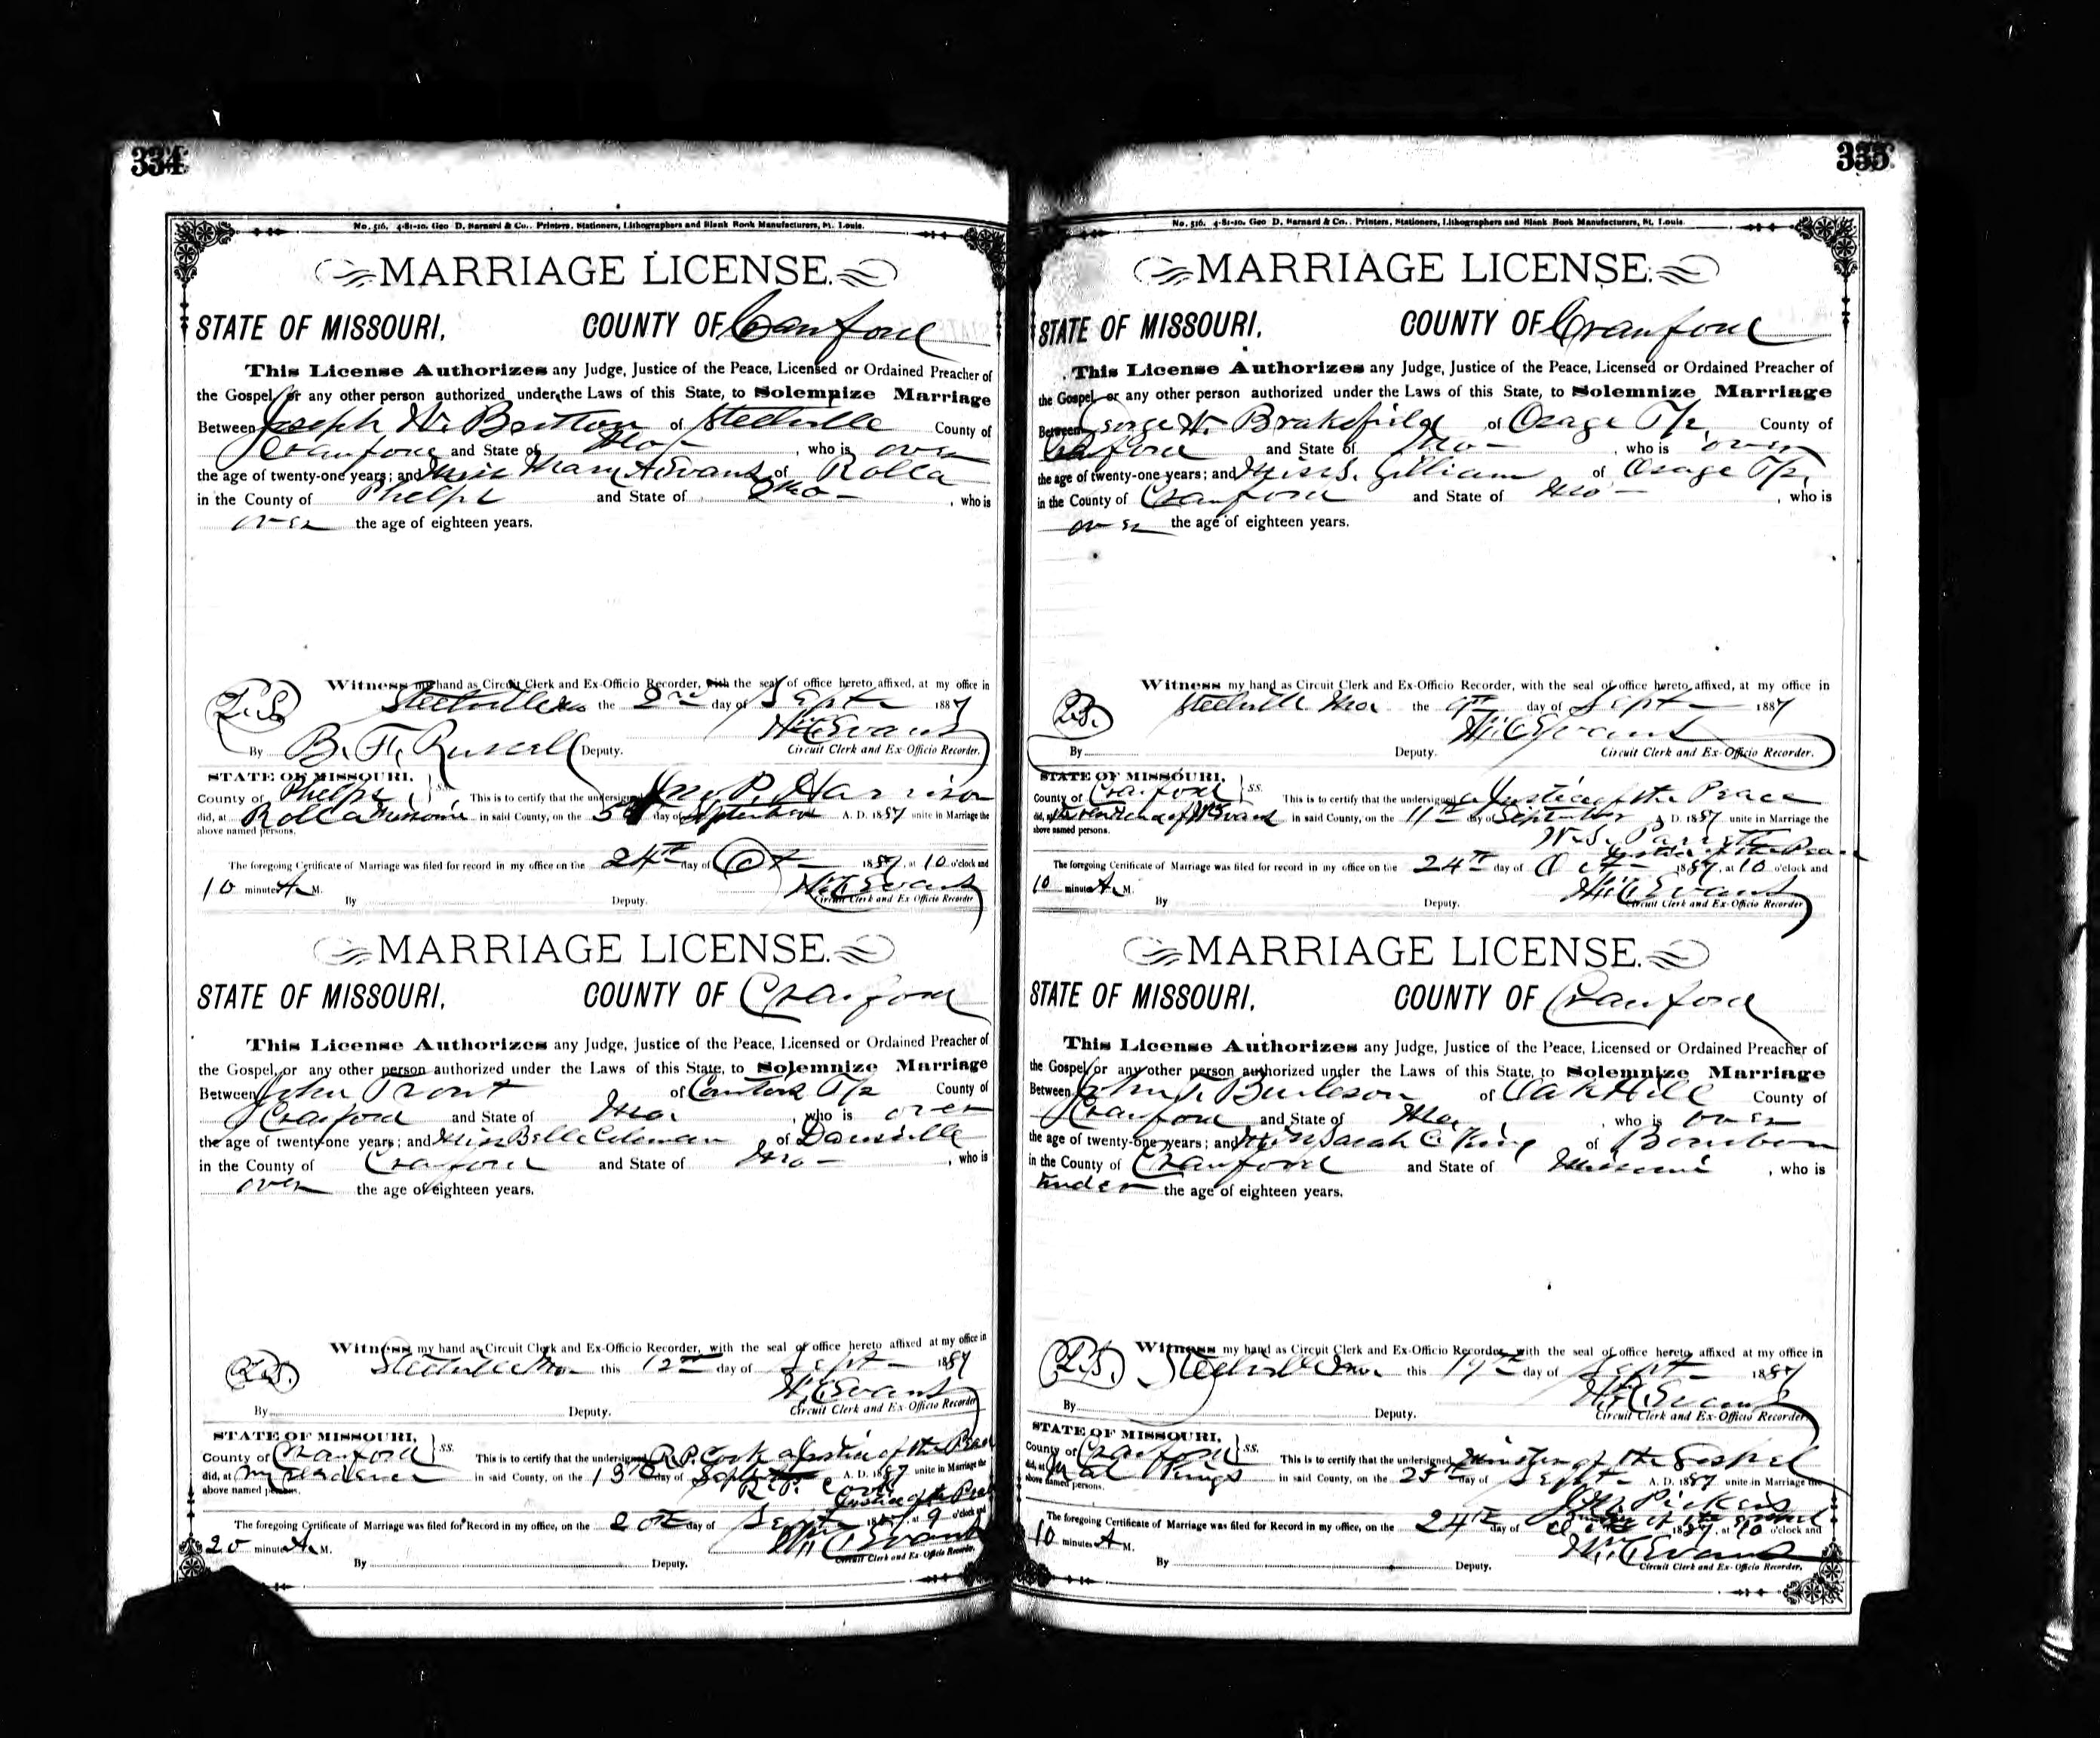 334
No. 516. 4-81-10. Geo D. Barnard & Co., Printers, Stationers, Lithographers and Blank Book Manufacturers, St. Louis.
MARRIAGE LICENSE.
STATE OF MISSOURI, COUNTY OF Crawford
This License Authorizes any Judge, Justice of the Peace, Licensed or Ordained Preacher of
the Gospel, or any other person authorized under the Laws of this State, to Solemnize Marriage
Between Joseph W. Britton of Steelville County of
Crawford and State of Mo , who is over
the age of twenty-one years; and Miss Mary A Evans of Rolla
in the County of Phelps and State of Mo , who is
over the age of eighteen years.
Witness my hand as Circuit Clerk and Ex-Officio Recorder, with the seal of office hereto affixed, at my office in
L.S. Steelville Mo the 2nd day of Sept 1887
Wm C Evans
By B. F. Russell Deputy. Circuit Clerk and Ex-Officio Recorder.
STATE OF MISSOURI,
County of Phelps ss. This is to certify that the undersigned Jno P. Harrison
did, at Rolla Missouri in said County, on the 5th day of September A. D. 1887 unite in Marriage the
above named persons.
The foregoing Certificate of Marriage was filed for record in my office on the 24th day of Oct 1887, at 10 o'clock and
10 minutes A M. Wm C Evans
By Deputy. Circuit Clerk and Ex Officio Recorder
MARRIAGE LICENSE.
STATE OF MISSOURI, COUNTY OF Crawford
This License Authorizes any Judge, Justice of the Peace, Licensed or Ordained Preacher of
the Gospel, or any other person authorized under the Laws of this State, to Solemnize Marriage
Between John Trout of Tp County of
Crawford and State of Mo , who is over
the age of twenty-one years; and Miss Belle Coleman of Davisville
in the County of Crawford and State of Mo , who is
over the age of eighteen years.
Witness my hand as Circuit Clerk and Ex-Officio Recorder, with the seal of office hereto affixed at my office in
L.S. Steelville Mo this 12th day of Sept 1887
Wm C Evans
By Deputy. Circuit Clerk and Ex-Officio Recorder
STATE OF MISSOURI,
County of Crawford ss. This is to certify that the undersigned R. P. Cook a Justice of the Peace
did, at My residence in said County, on the 13th day of September A. D. 1887 unite in Marriage the
above named persons. R. P. Cook
Justice of the Peace
The foregoing Certificate of Marriage was filed for Record in my office, on the 20th day of Sept 1887, at 9 o'clock and
20 minutes A M. Wm C Evans
By Deputy. Circuit Clerk and Ex-Officio Recorder.
335
No. 516. 4-81-10. Geo D. Barnard & Co., Printers, Stationers, Lithographers and Blank Book Manufacturers, St. Louis.
MARRIAGE LICENSE.
STATE OF MISSOURI, COUNTY OF Crawford
This License Authorizes any Judge, Justice of the Peace, Licensed or Ordained Preacher of
the Gospel or any other person authorized under the Laws of this State, to Solemnize Marriage
Between George W. Brakefield of Osage Tp County of
Crawford and State of Mo , who is over
the age of twenty-one years; and Miss S. Gilliam of Osage Tp,
in the County of Crawford and State of Mo , who is
over the age of eighteen years.
Witness my hand as Circuit Clerk and Ex-Officio Recorder, with the seal of office hereto affixed, at my office in
L.S. Steelville Mo. the 9th day of Sept 1887
Wm C Evans
By Deputy. Circuit Clerk and Ex-Officio Recorder.
STATE OF MISSOURI,
County of Crawford ss. This is to certify that the undersigned a Justice of the Peace
did, at the residence of in said County, on the 11th day of September A. D. 1887 unite in Marriage the
above named persons. W. S.
Justice of the Peace
The foregoing Certificate of Marriage was filed for record in my office on the 24th day of Oct 1887, at 10 o'clock and
10 minutes A M. Wm C Evans
By Deputy. Circuit Clerk and Ex-Officio Recorder
MARRIAGE LICENSE.
STATE OF MISSOURI, COUNTY OF Crawford
This License Authorizes any Judge, Justice of the Peace, Licensed or Ordained Preacher of
the Gospel or any other person authorized under the Laws of this State, to Solemnize Marriage
Between John T. Burleson of Oak Hill County of
Crawford and State of Mo , who is over
the age of twenty-one years; and Miss Sarah C King of Bourbon
in the County of Crawford and State of Missouri , who is
under the age of eighteen years.
Witness my hand as Circuit Clerk and Ex-Officio Recorder, with the seal of office hereto affixed at my office in
L.S. Steelville Mo. this 19th day of Sept 1887
Wm C Evans
By Deputy. Circuit Clerk and Ex-Officio Recorder
STATE OF MISSOURI,
County of Crawford ss. This is to certify that the undersigned Minister of the Gospel
did, at in said County, on the 25th day of Sept A. D. 1887 unite in Marriage the
above named persons. Pickens
Minister of the Gospel
The foregoing Certificate of Marriage was filed for Record in my office, on the 24th day of Oct 1887, at 10 o'clock and
10 minutes A M. Wm C Evans
By Deputy. Circuit Clerk and Ex-Officio Recorder.